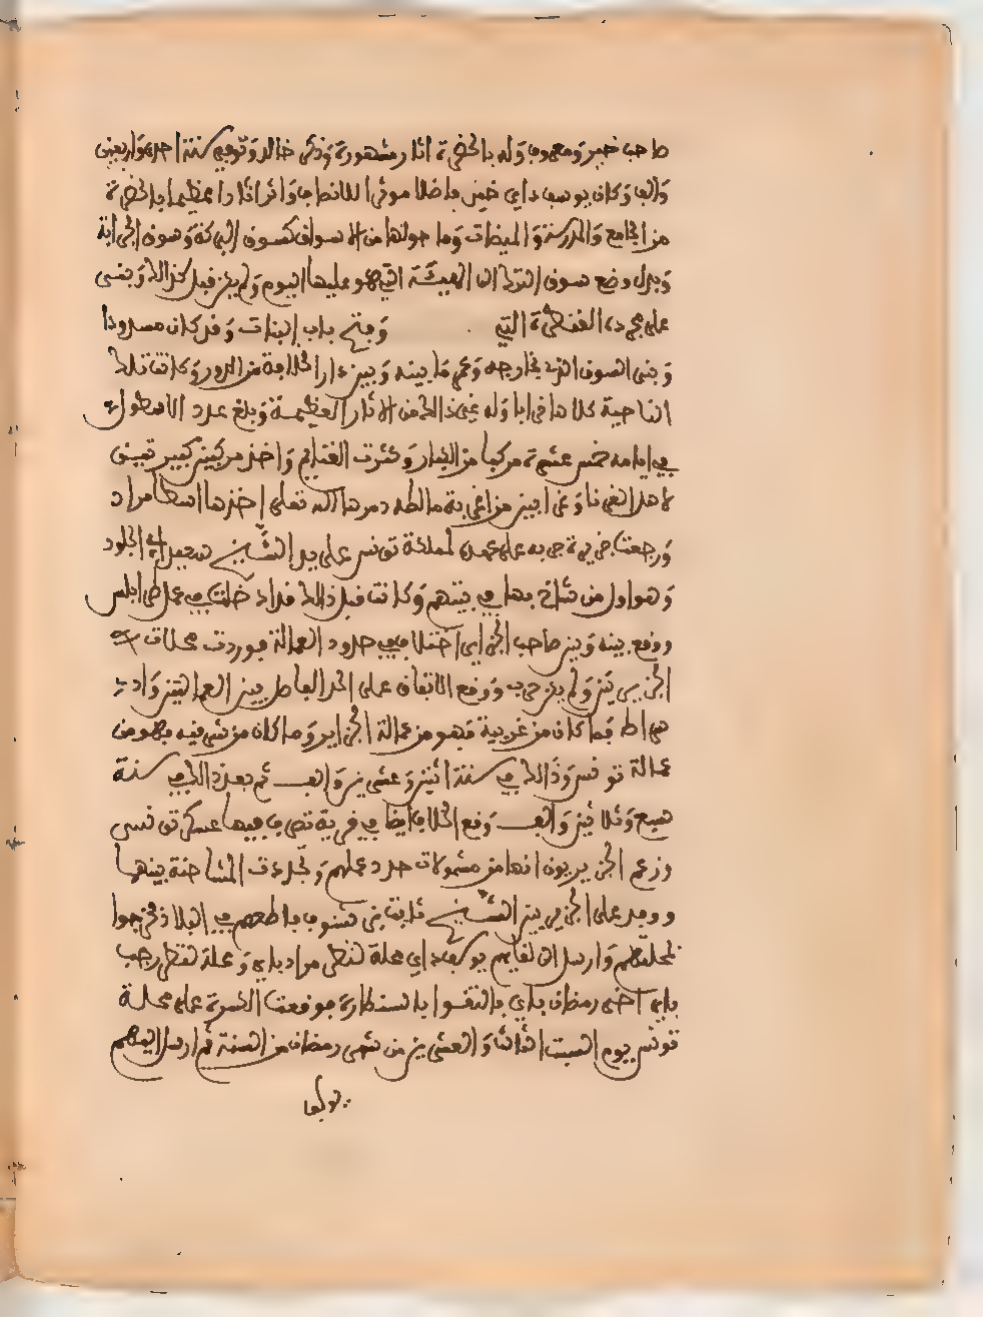 صاحب خير ومعروف وله بالحضرة اثار مشهورة وذكر خالد وتوفي سنة احدى واربعين
والف وكان يوسف داي خير فاضلا موثرا للانصاف واثر اثارا عظيما بالحضرة
من الجامع والمدرسة والميضات وما حولها من الاسواق كسوق البركة وسوق الجرابة
وبدل وضع سوق الترك الى الهيئة التي هو عليها اليوم ولم يكن قبل كذالك وبنى
على مجردة القنطرة التي وفتح باب البنات وقد كان مسدودا
وبنى السوق الذي بخارجه وعمر ما بينه وبين دار الخلافة من الدور وكانت تلك
الناحية كلها خرابا وله غير ذالك من الاثار العظيمة وبلغ عدد الاسطول
في ايامه خمس عشرة مركبا من الكبار وكثرت الغنايم واخذ مركبين كبيرتين
لاهل وغرابين من اغربة مالطه دمرها الله تعلى اخذها اسطا مراد
ورجعت جربة على عمل لمملكة تونس على يد الشيخ سعيد الجلود
وهو اول من شاخ بها في بيتهم وكانت قبل ذالك داخلة في عمل طرابلس
ووقع بينه وبين صاحب الجزاير اختلاف في حدود العمالة فوردت محلات
الجزيريين ولم يكن حرب ووقع الاتفاق على الحد الفاصل بين العمالتين واد
سراط فما كان من غربية فهو من عمالة الجزاير وما كان من شرقيه فهو من
عمالة تونس وذالك في سنة اثنين وعشرين والف ثم بعد ذالك في سنة
سبع وثلاثين والف وقع الخلاف ايضا في قرية تصرف فيها عسكر تونس
وزعم الجزيريون انها من مشمولات حدد عملهم وتجردت المشاحنة بينهما
ووفد على الجزيريين الشيخ ثابت بن شنوف فاطمعهم في البلاد فخرجوا
بمحلتهم وارسل الى لقايهم يوسف داي محلة لنظر مراد باي ومحلة لنظر رجب
باي اخر رمضان باي فالتقوا بالسطارة فوقعت الكسرة على محلة
تونس يوم السبت الثالث والعشرين من شهر رمضان من السنة ثم ارسل اليهم